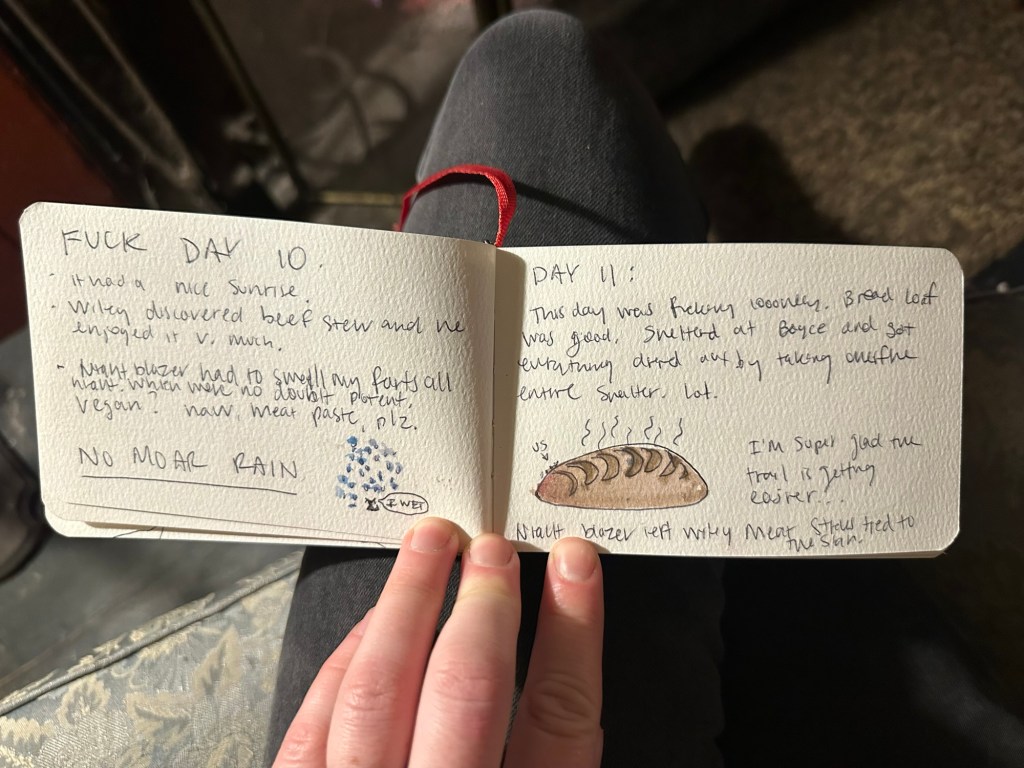 FUCK DAY 10.
- it had a nice sunrise.
- Wiley discovered beef stew and he
enjoyed it v. much.
- Night blazer had to smell my farts all
night. which were no doubt potent.
vegan? naw, meat paste, plz.
NO MOAR RAIN
I WET
DAY 11:
This day was freaking looooney. Bread loaf
was good. Sheltered at Boyce and got
everything dried out by taking over the
entire shelter. Lol.
US
I'm super glad the
trail is getting
easier...
Night blazer left Wiley Meat Sticks tied to
the sign.